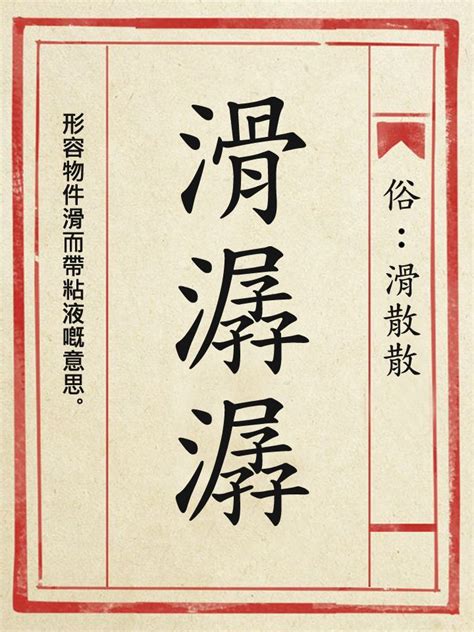 俗：滑散散
滑潺潺
形容物件滑而帶粘液嘅意思。